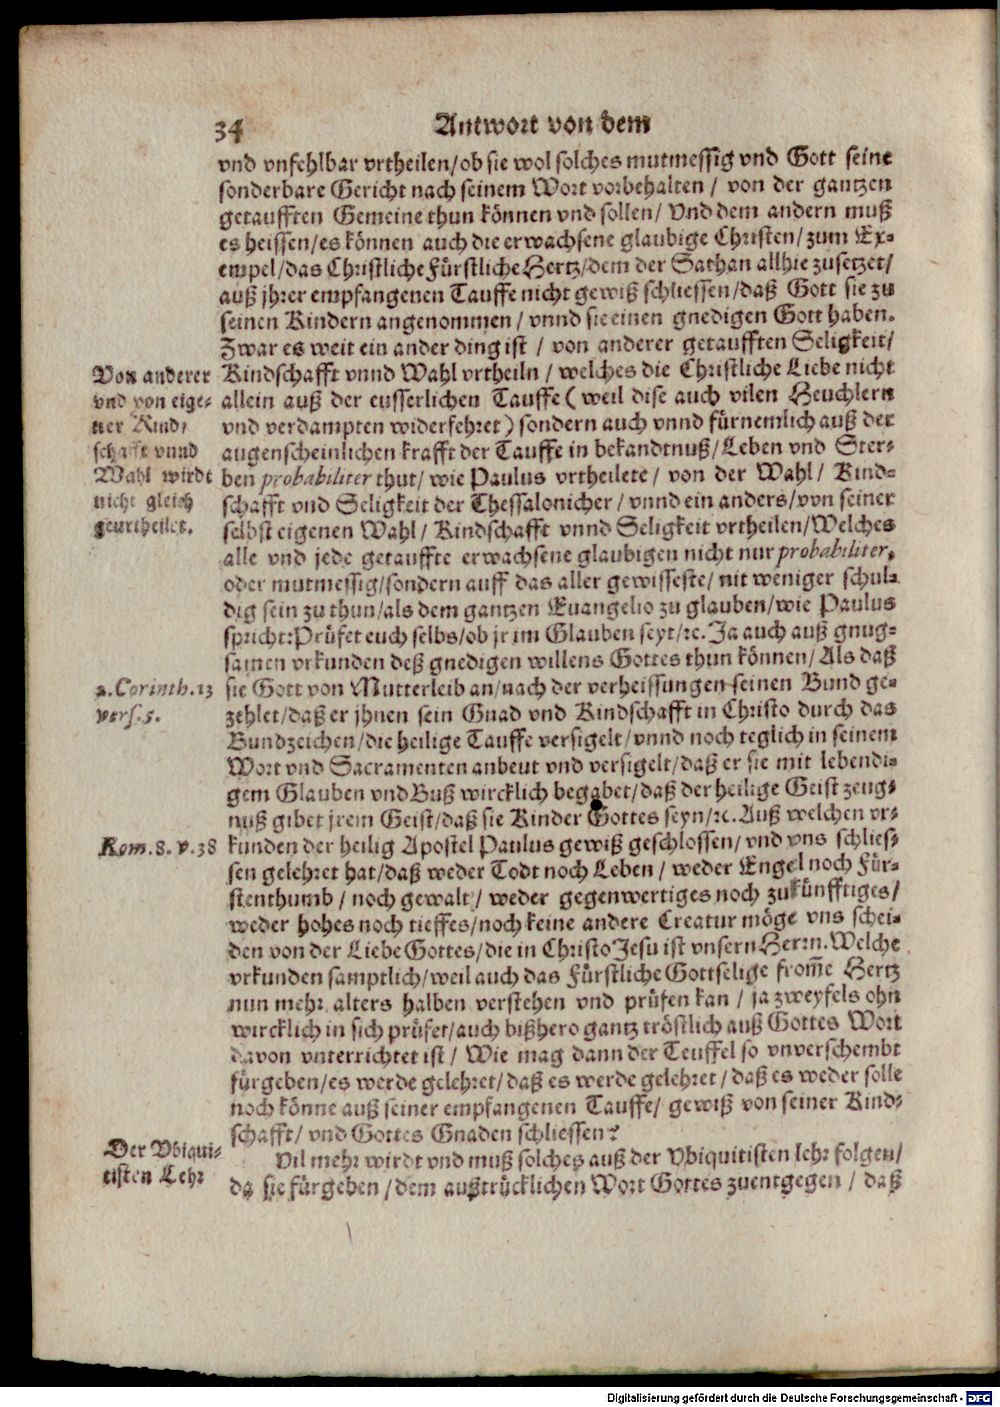 34 Antwort von dem
vnd vnfehlbar vrtheilen/ob sie wol solches mutmessig vnd Gott seine
sonderbare Gericht nach seinem Wort vorbehalten / von der gantzen
getaufften Gemeine thun können vnd sollen/ Vnd dem andern muß
es heissen/es können auch die erwachsene glaubige Christen/zum Ex-
empel/das Christliche Fürstliche Hertz/dem der Sathan allhie zusetzet/
auß jhrer empfangenen Tauffe nicht gewiß schliessen/daß Gott sie zu
seinen Kindern angenommen / vnnd sie einen gnedigen Gott haben.
Zwar es weit ein ander ding ist / von anderer getaufften Seligkeit/
Kindschafft vnnd Wahl vrtheiln / welches die Christliche Liebe nicht
allein auß der eusserlichen Tauffe (weil dise auch vilen Heuchlern
vnd verdampten widerfehret) sondern auch vnnd fürnemlich auß der
augenscheinlichen krafft der Tauffe in bekandtnuß/Leben vnd Ster-
ben probabiliter thut/ wie Paulus vrtheilete / von der Wahl/ Kind-
schafft vnd Seligkeit der Thessalonicher / vnnd ein anders/von seiner
selbst eigenen Wahl / Kindschafft vnnd Seligkeit vrtheilen/Welches
alle vnd jede getauffte erwachsene glaubigen nicht nur probabiliter,
oder mutmessig/sondern auff das aller gewisseste/ nit weniger schul-
dig sein zu thun/als dem gantzen Euangelio zu glauben/wie Paulus
spricht: Prüfet euch selbs/ob jr im Glauben seyt/ꝛc. Ja auch auß gnug-
samen vrkunden deß gnedigen willens Gottes thun können/ Als daß
sie Gott von Mutterleib an/nach der verheissungen seinen Bund ge-
zehlet/daß er jhnen sein Gnad vnd Kindschafft in Christo durch das
Bundzeichen/die heilige Tauffe versigelt/vnnd noch teglich in seinem
Wort vnd Sacramenten anbeut vnd versigelt/daß er sie mit lebendi-
gem Glauben vnd Buß wircklich begabet/daß der heilige Geist zeug-
nuß gibet jrem Geist/daß sie Kinder Gottes seyn/ꝛc. Auß welchen vr-
kunden der heilig Apostel Paulus gewiß geschlossen/vnd vns schlies-
sen gelehret hat/daß weder Todt noch Leben / weder Engel noch Für-
stenthumb / noch gewalt / weder gegenwertiges noch zukünfftiges/
weder hohes noch tieffes/noch keine andere Creatur möge vns schei-
den von der Liebe Gottes/die in Christo Jesu ist vnsern Herrn. Welche
vrkunden samptlich/weil auch das Fürstliche Gottselige from̃e Hertz
nun mehr alters halben verstehen vnd prüfen kan / ja zweyfels ohn
wircklich in sich prüfet/auch bißhero gantz tröstlich auß Gottes Wort
davon vnterrichtet ist / Wie mag dann der Teuffel so vnverschembt
fürgeben/es werde gelehret/daß es werde gelehret / daß es weder solle
noch könne auß seiner empfangenen Tauffe/ gewiß von seiner Kind-
schafft/ vnd Gottes Gnaden schliessen?
Vil mehr wirdt vnd muß solches auß der Vbiquitisten lehr folgen/
da sie fürgeben /dem außtrücklichen Wort Gottes zuentgegen / daß
Von anderer
vnd von eige-
ner Kind-
schafft vnnd
Wahl wirdt
nicht gleich
geurtheilet.
2. Corinth. 13
vers. 5.
Rom. 8. v. 38
Der Vbiqui-
tisten Lehr
Digitalisierung gefördert durch die Deutsche Forschungsgemeinschaft - DFG